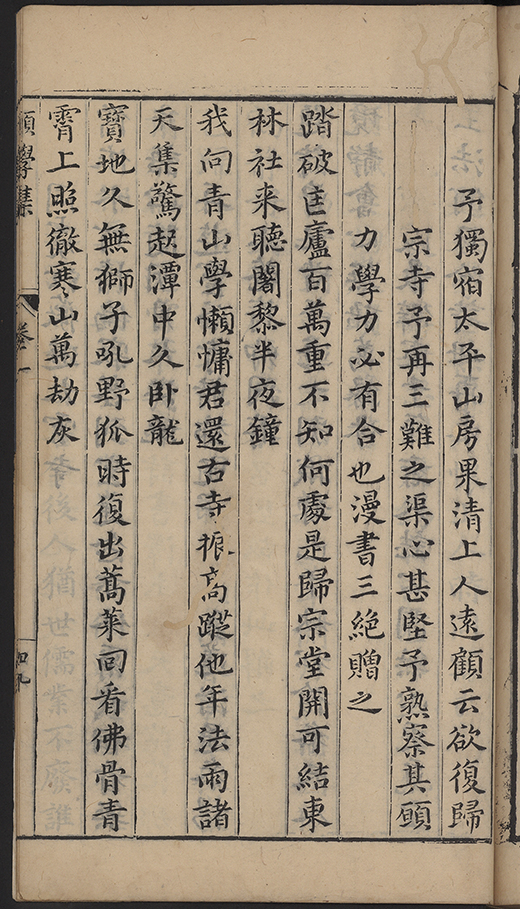 予獨宿太平山房果清上人遠顧云欲復歸
宗寺予再三難之渠心甚堅予熟察其願
力學力必有合也漫書三絕贈之
踏破匡廬百萬重不知何處是歸宗堂開可結東
林社来聽闍黎半夜鐘
我向青山學懶慵君還古寺振高蹤他年法雨諸
天集驚起潭中久卧龍
寶地久無獅子吼野狐時復出蒿萊回看佛骨青
霄上照徹寒山萬劫灰
願學集
卷一
四九